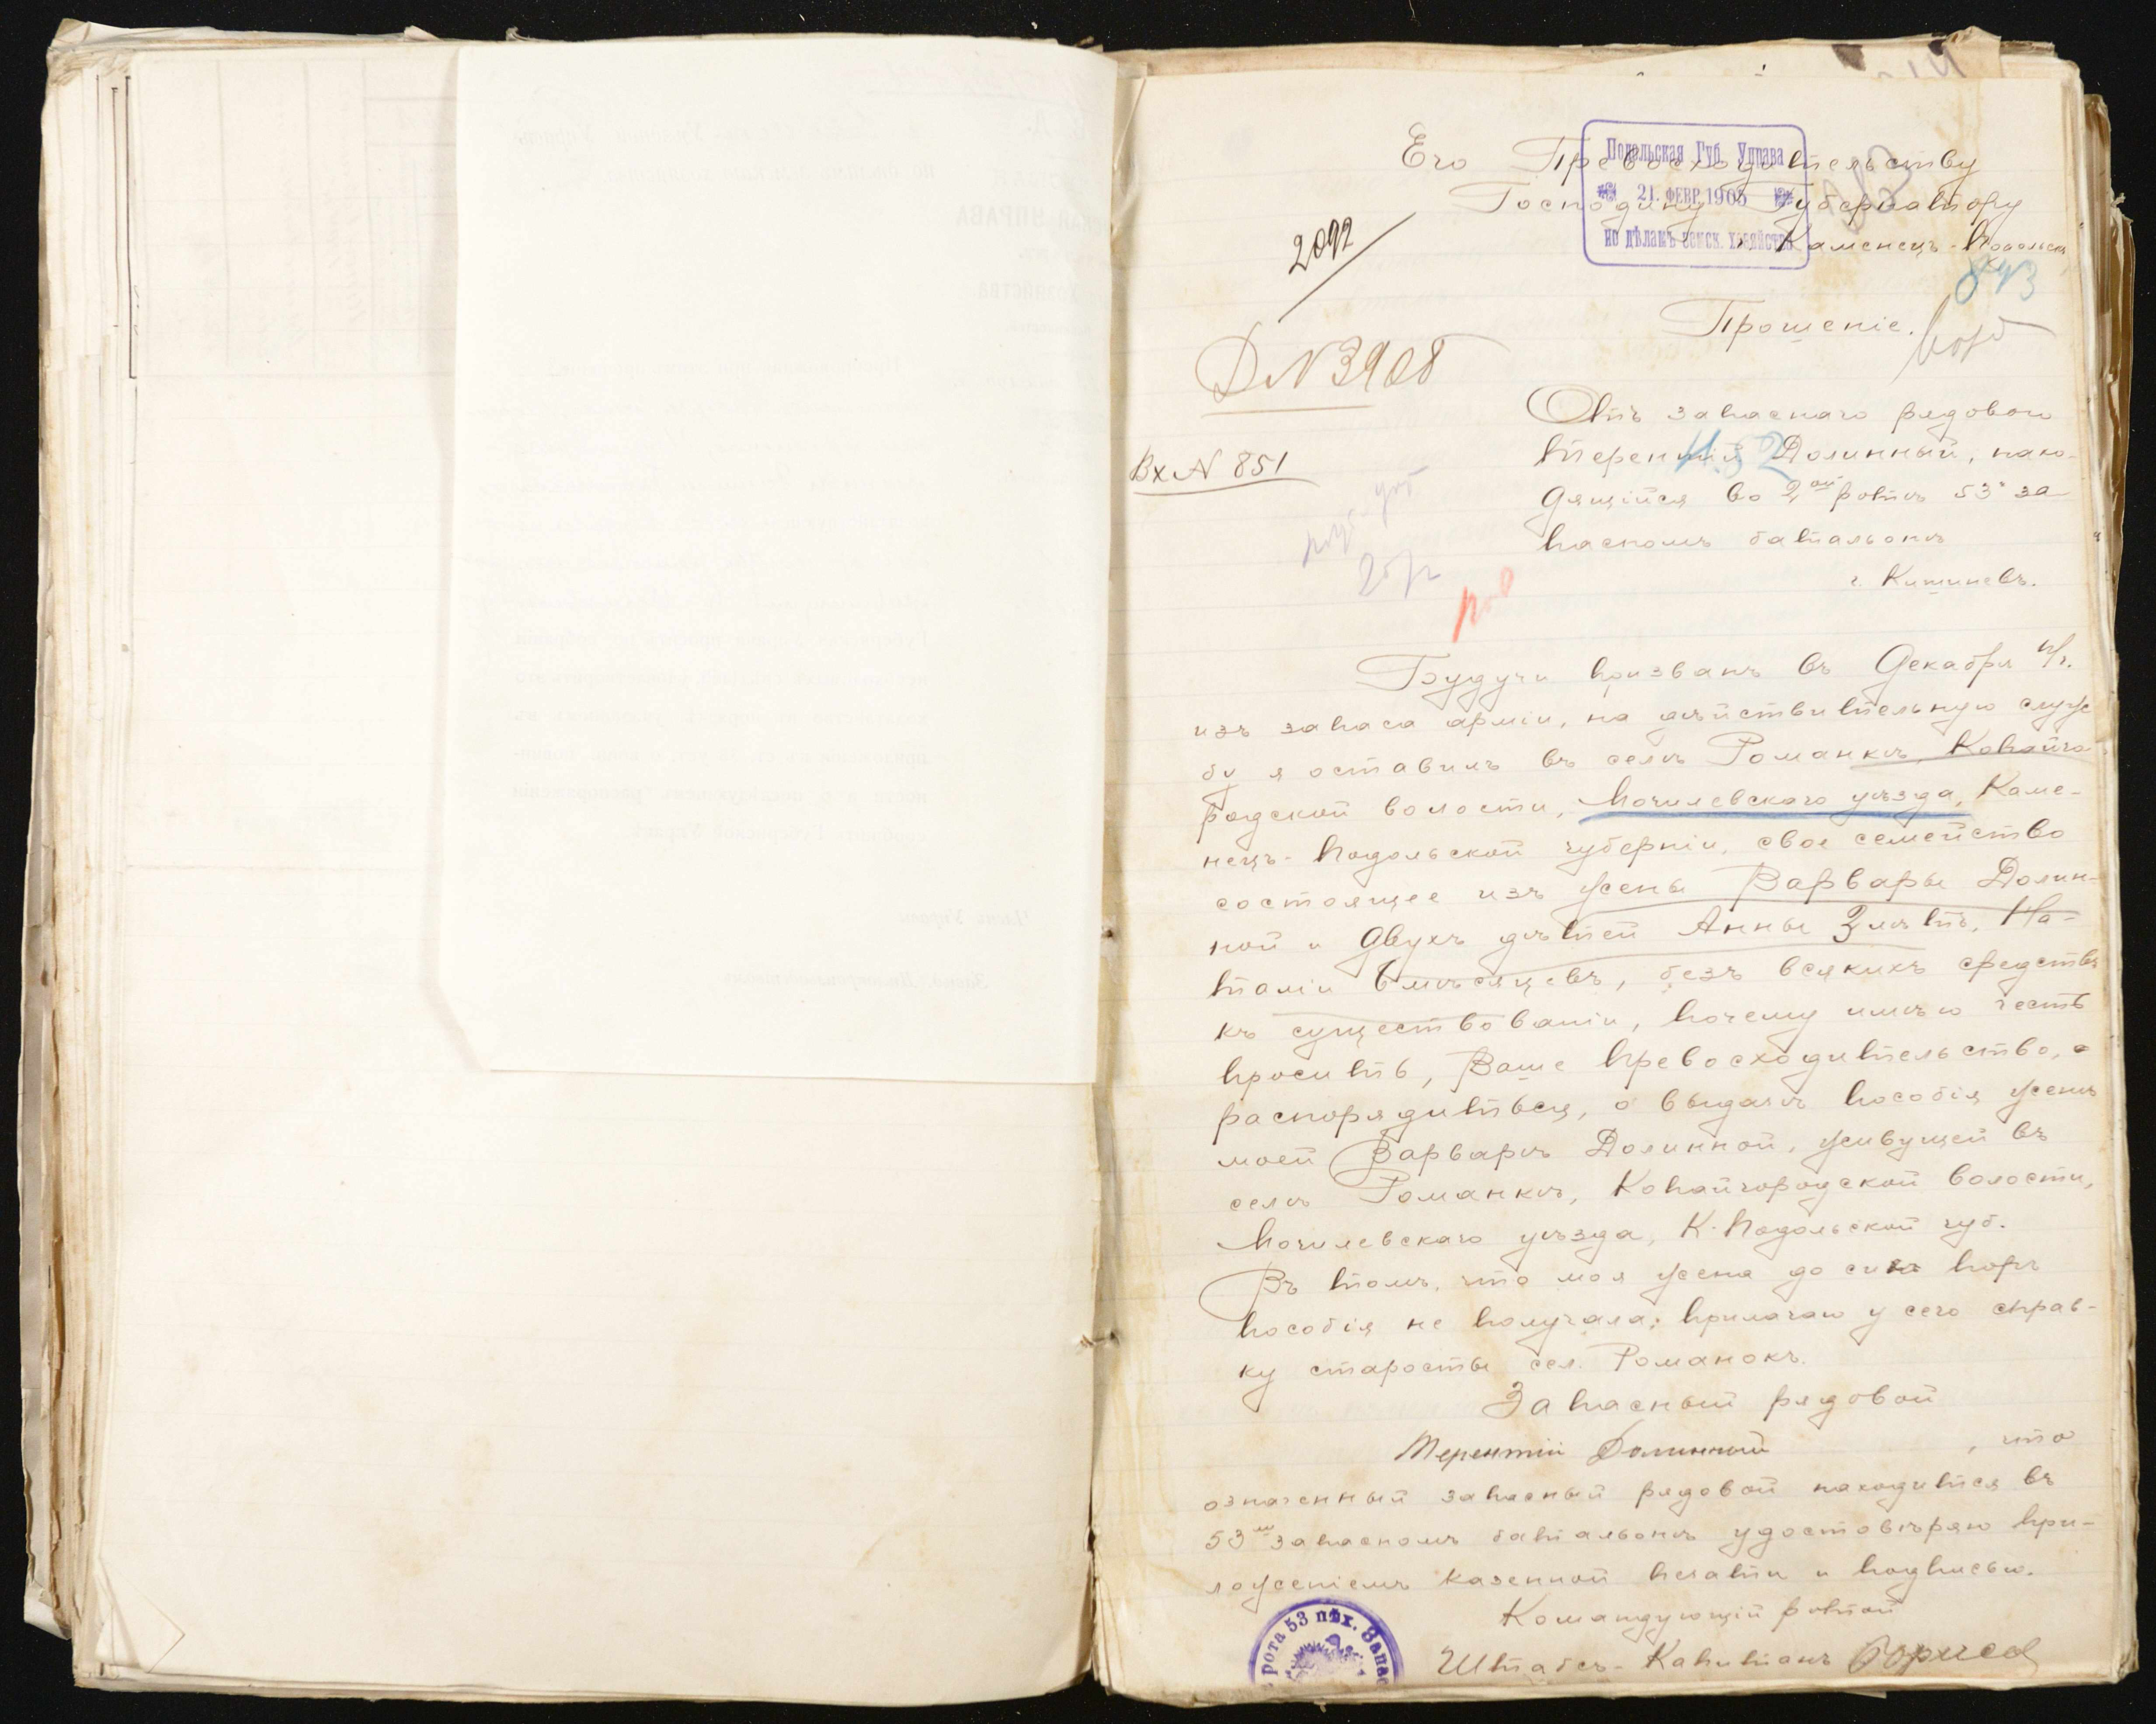 Его Превосходительству
Господину Губернатору
Каменецъ-Подольскъ
Подольская Губ. Управа
21. ФЕВР. 1905
по дѣламъ земск. хозяйства
2092
Прошеніе.
Д N 3908
Вх N 851
Отъ запаснаго рядового
Терентій Долинный, нахо-
дящійся во 2ой ротѣ 53го за-
пасномъ баталіонѣ
г. Кишиневъ.
Будучи призванъ въ Декабря
изъ запаса арміи, на дѣйствительную служ
бу я оставилъ въ селѣ Романкѣ, Копайго
родской волости, Могилевскаго уѣзда, Каме-
нецъ-Подольской губерніи, свое семейство
состоящее изъ жены Варвары Долин-
ной и двухъ дѣтей Анны 3 лѣтъ, На-
таліи 6 мѣсяцевъ, безъ всякихъ средствъ
къ существованіи, почему имѣю честь
просить, Ваше Превосходительство,
распорядиться, о выдачѣ пособія женѣ
моей Варварѣ Долинной, живущей въ
селѣ Романкѣ, Копайгородской волости,
Могилевскаго уѣзда, К-Подольской губ.
Въ томъ, что моя жена до сихъ поръ
пособія не получала; прилагаю у сего справ-
ку старосты сел. Романокъ.
Запасный рядовой
Терентій Долинный , что
означенный запасный рядовой находится въ
53мъ запасномъ баталіонѣ удостовѣряю при-
ложеніемъ казенной печати и подписью.
Командующій ротой
Штабсъ-Капитанъ
рота 53 пѣх. Запас